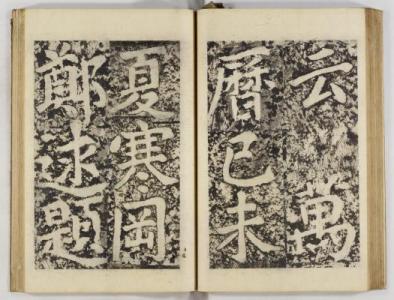 云萬
曆己未
夏寒岡
鄭逑題